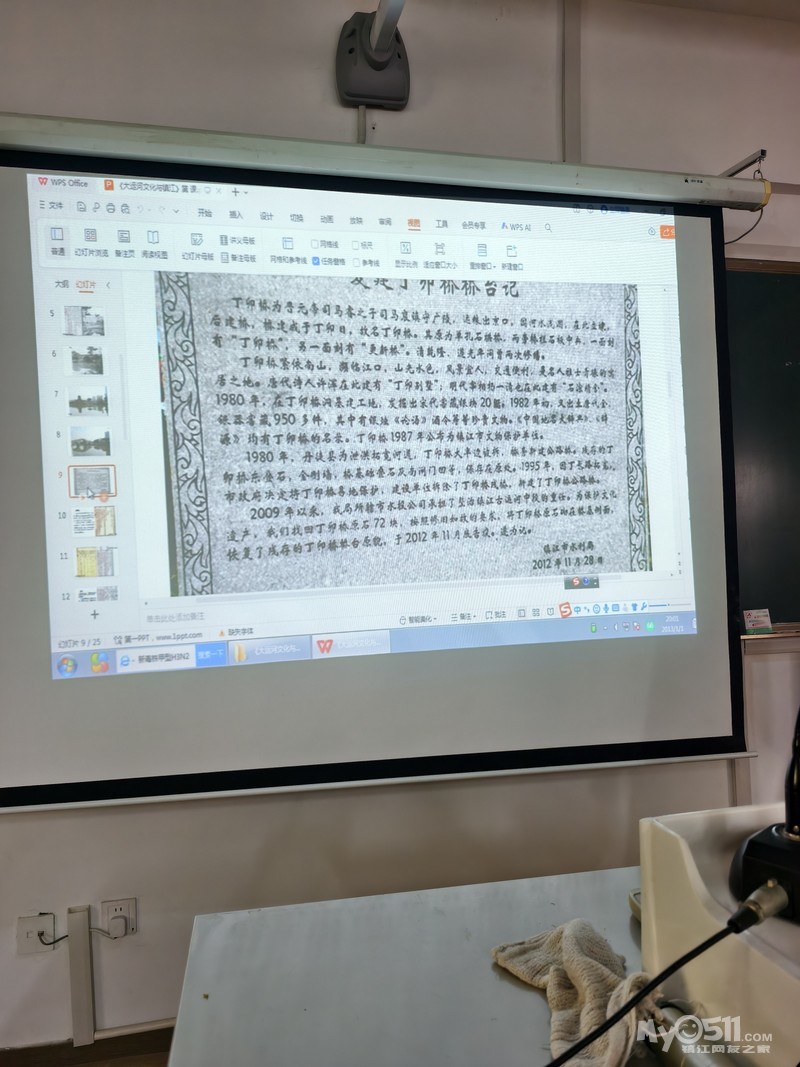 WPS Office
《大运河文化与镇江》第 课
文件 开始 插入 设计 切换 动画 放映 审阅 视图 工具 会员专享 WPS AI
普通 幻灯片浏览 备注页 阅读视图 幻灯片母版 讲义母版 备注母版 网格和参考线 网格线 标尺 任务窗格 参考线 显示比例 适应窗口大小 重排窗口 新建窗口
大纲 幻灯片
5
6
7
8
9
10
11
12
复建丁卯桥桥台记
丁卯桥为晋元帝司马睿之子司马裒镇守广陵，运粮出京口，因河水浅涸，在此立埭，
后建桥，桥建成于丁卯日，故名丁卯桥。其原为单孔石拱桥，两旁桥栏石板中央，一面刻
有“丁卯桥”，另一面刻有“更新桥”。清乾隆、道光年间曾两次修缮。
丁卯桥紧依南山，濒临江口，山光水色，风景宜人，交通便利，是名人雅士青睐的宅
居之地。唐代诗人许浑在此建有“丁卯别墅”，明代宰相杨一清也在此建有“石淙精舍”。
1980年，在丁卯桥沟基建工地，发掘出宋代窖藏银锭20笏。1982年初，又出土唐代金
银器窖藏950多件，其中有银涂《论语》酒令筹等珍贵文物。《中国地名大辞典》、《辞
源》均有丁卯桥的名条。丁卯桥1987年公布为镇江市文物保护单位。
1980年，丹徒县为泄洪拓宽河道，丁卯桥大半遭破拆，桥旁新建公路桥。残存的丁
卯桥东叠石，金刚墙，桥基础叠石及南闸门凹等，保存在原处。1995年，因丁卯路拓宽，
市政府决定将丁卯桥易地保护，建设单位拆除了丁卯桥残桥，新建了丁卯桥公路桥。
2009年以来，我局所辖市水投公司承担了整治镇江古运河中段的重任。为保护文化
遗产，我们找回丁卯桥原石72块，按照修旧如故的要求，将丁卯桥原石砌在桥基侧面，
恢复了残存的丁卯桥桥台原貌，于2012年11月底告竣。遂为记。
镇江市水利局
2012年11月28日
单击此处添加备注
幻灯片 9 / 25 第一PPT，www.1ppt.com 缺失字体 智能美化 备注 批注
《大运河文化与...
搜索一下
20:01
My0511.COM
镇江网友之家